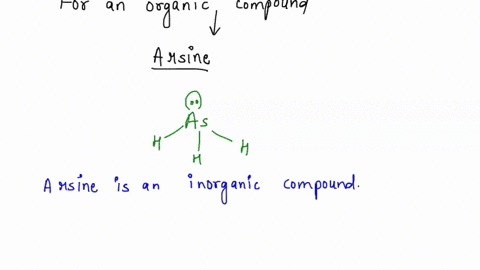 For an organic compound
Arsine
As
H H H
Arsine is an inorganic compound.